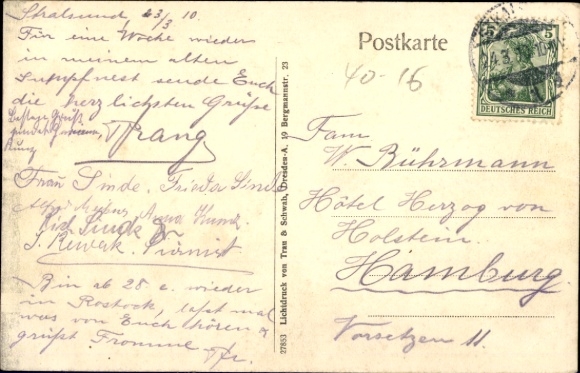 Stralsund, 23/3 10.
Für eine Woche wieder
in meinem alten
Sumpfnest sende Euch
die herzlichsten Grüße
Franz
Frau Linde. Frieda Linde
Anna
Pianist
Bin ab 28 c. wieder
in Rostock, laßt mal
was von Euch hören &
grüßt
Postkarte
40-16
5 5
DEUTSCHES REICH
Fam.
W. Bührmann
Hôtel Herzog von
Holstein.
Hamburg.
Vorsetzen 11.
27853 Lichtdruck von Trau & Schwab, Dresden-A. 19 Bergmannstr. 23